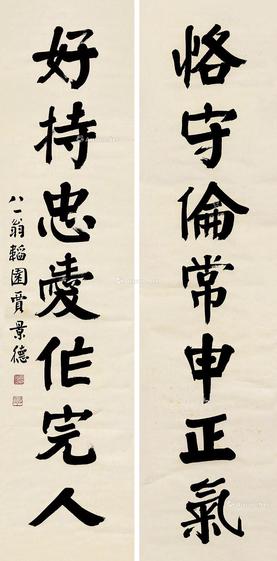 恪守倫常申正氣
好持忠愛作完人
八一翁韜園賈景德